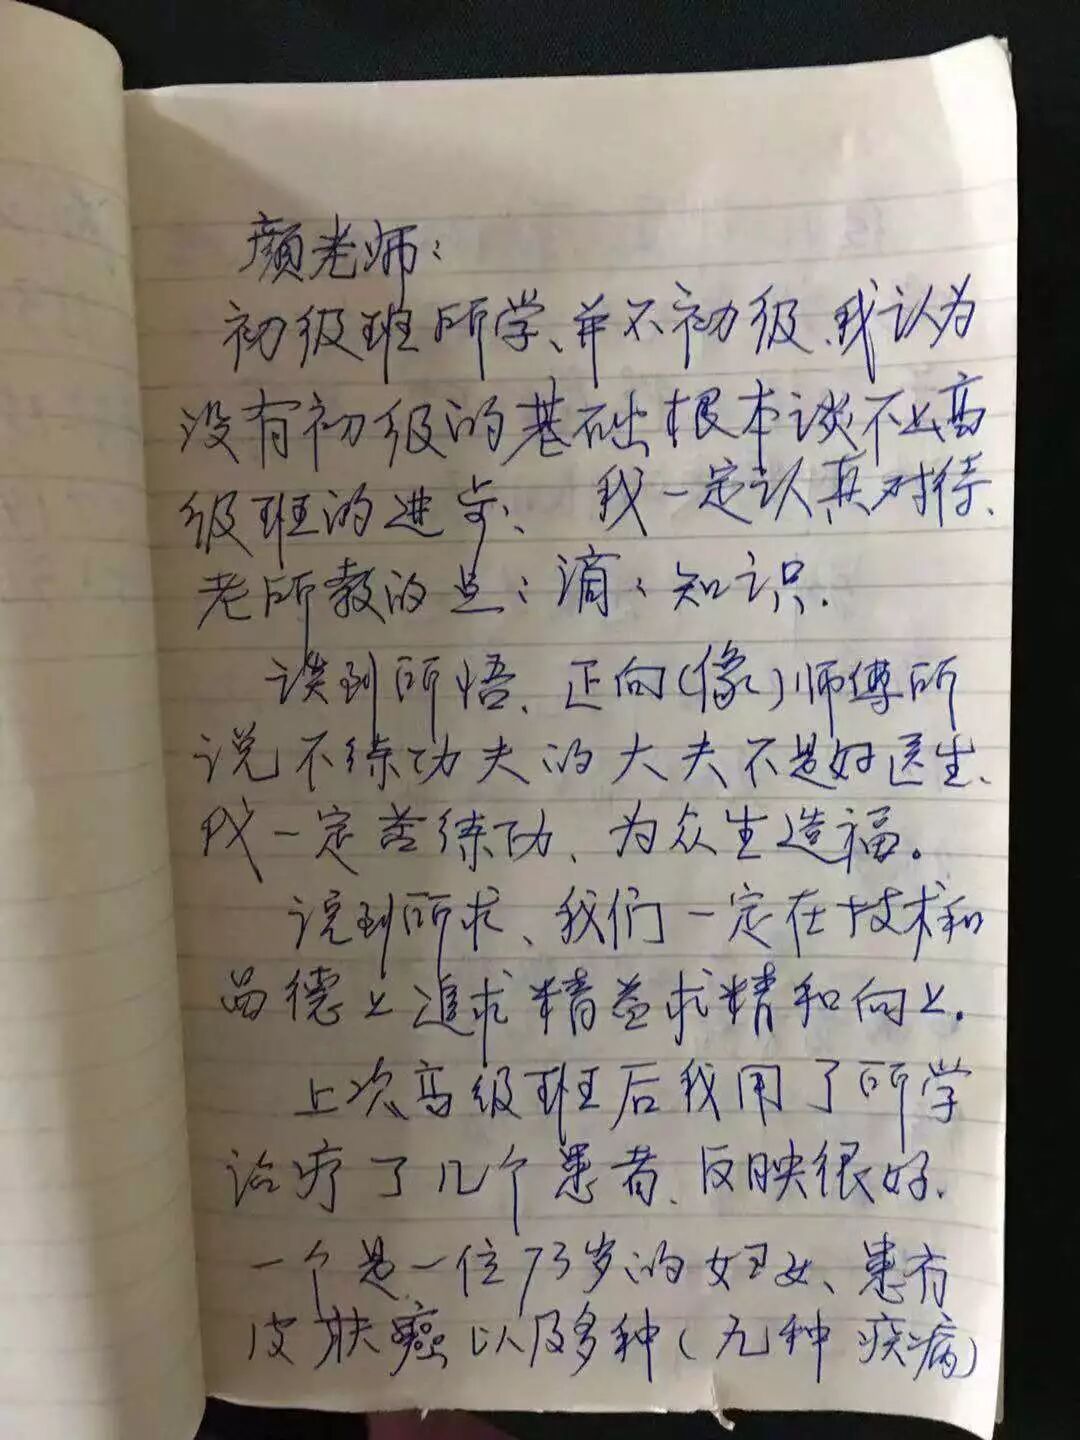 颜老师：
初级班所学、并不初级、我认为
没有初级的基础根本谈不上高
级班的进步、我一定认真对待、
老师教的点：滴：知识.
谈到所悟、正向(像)师傅所
说不练功夫的大夫不是好医生、
我一定苦练功、为众生造福。
说到所求、我们一定在技术和
品德上追求精益求精和向上.
上次高级班后我用了所学
治疗了几个患者、反映很好.
一个是一位73岁的妇女、患有
皮肤癌以及多种(九种疾病)